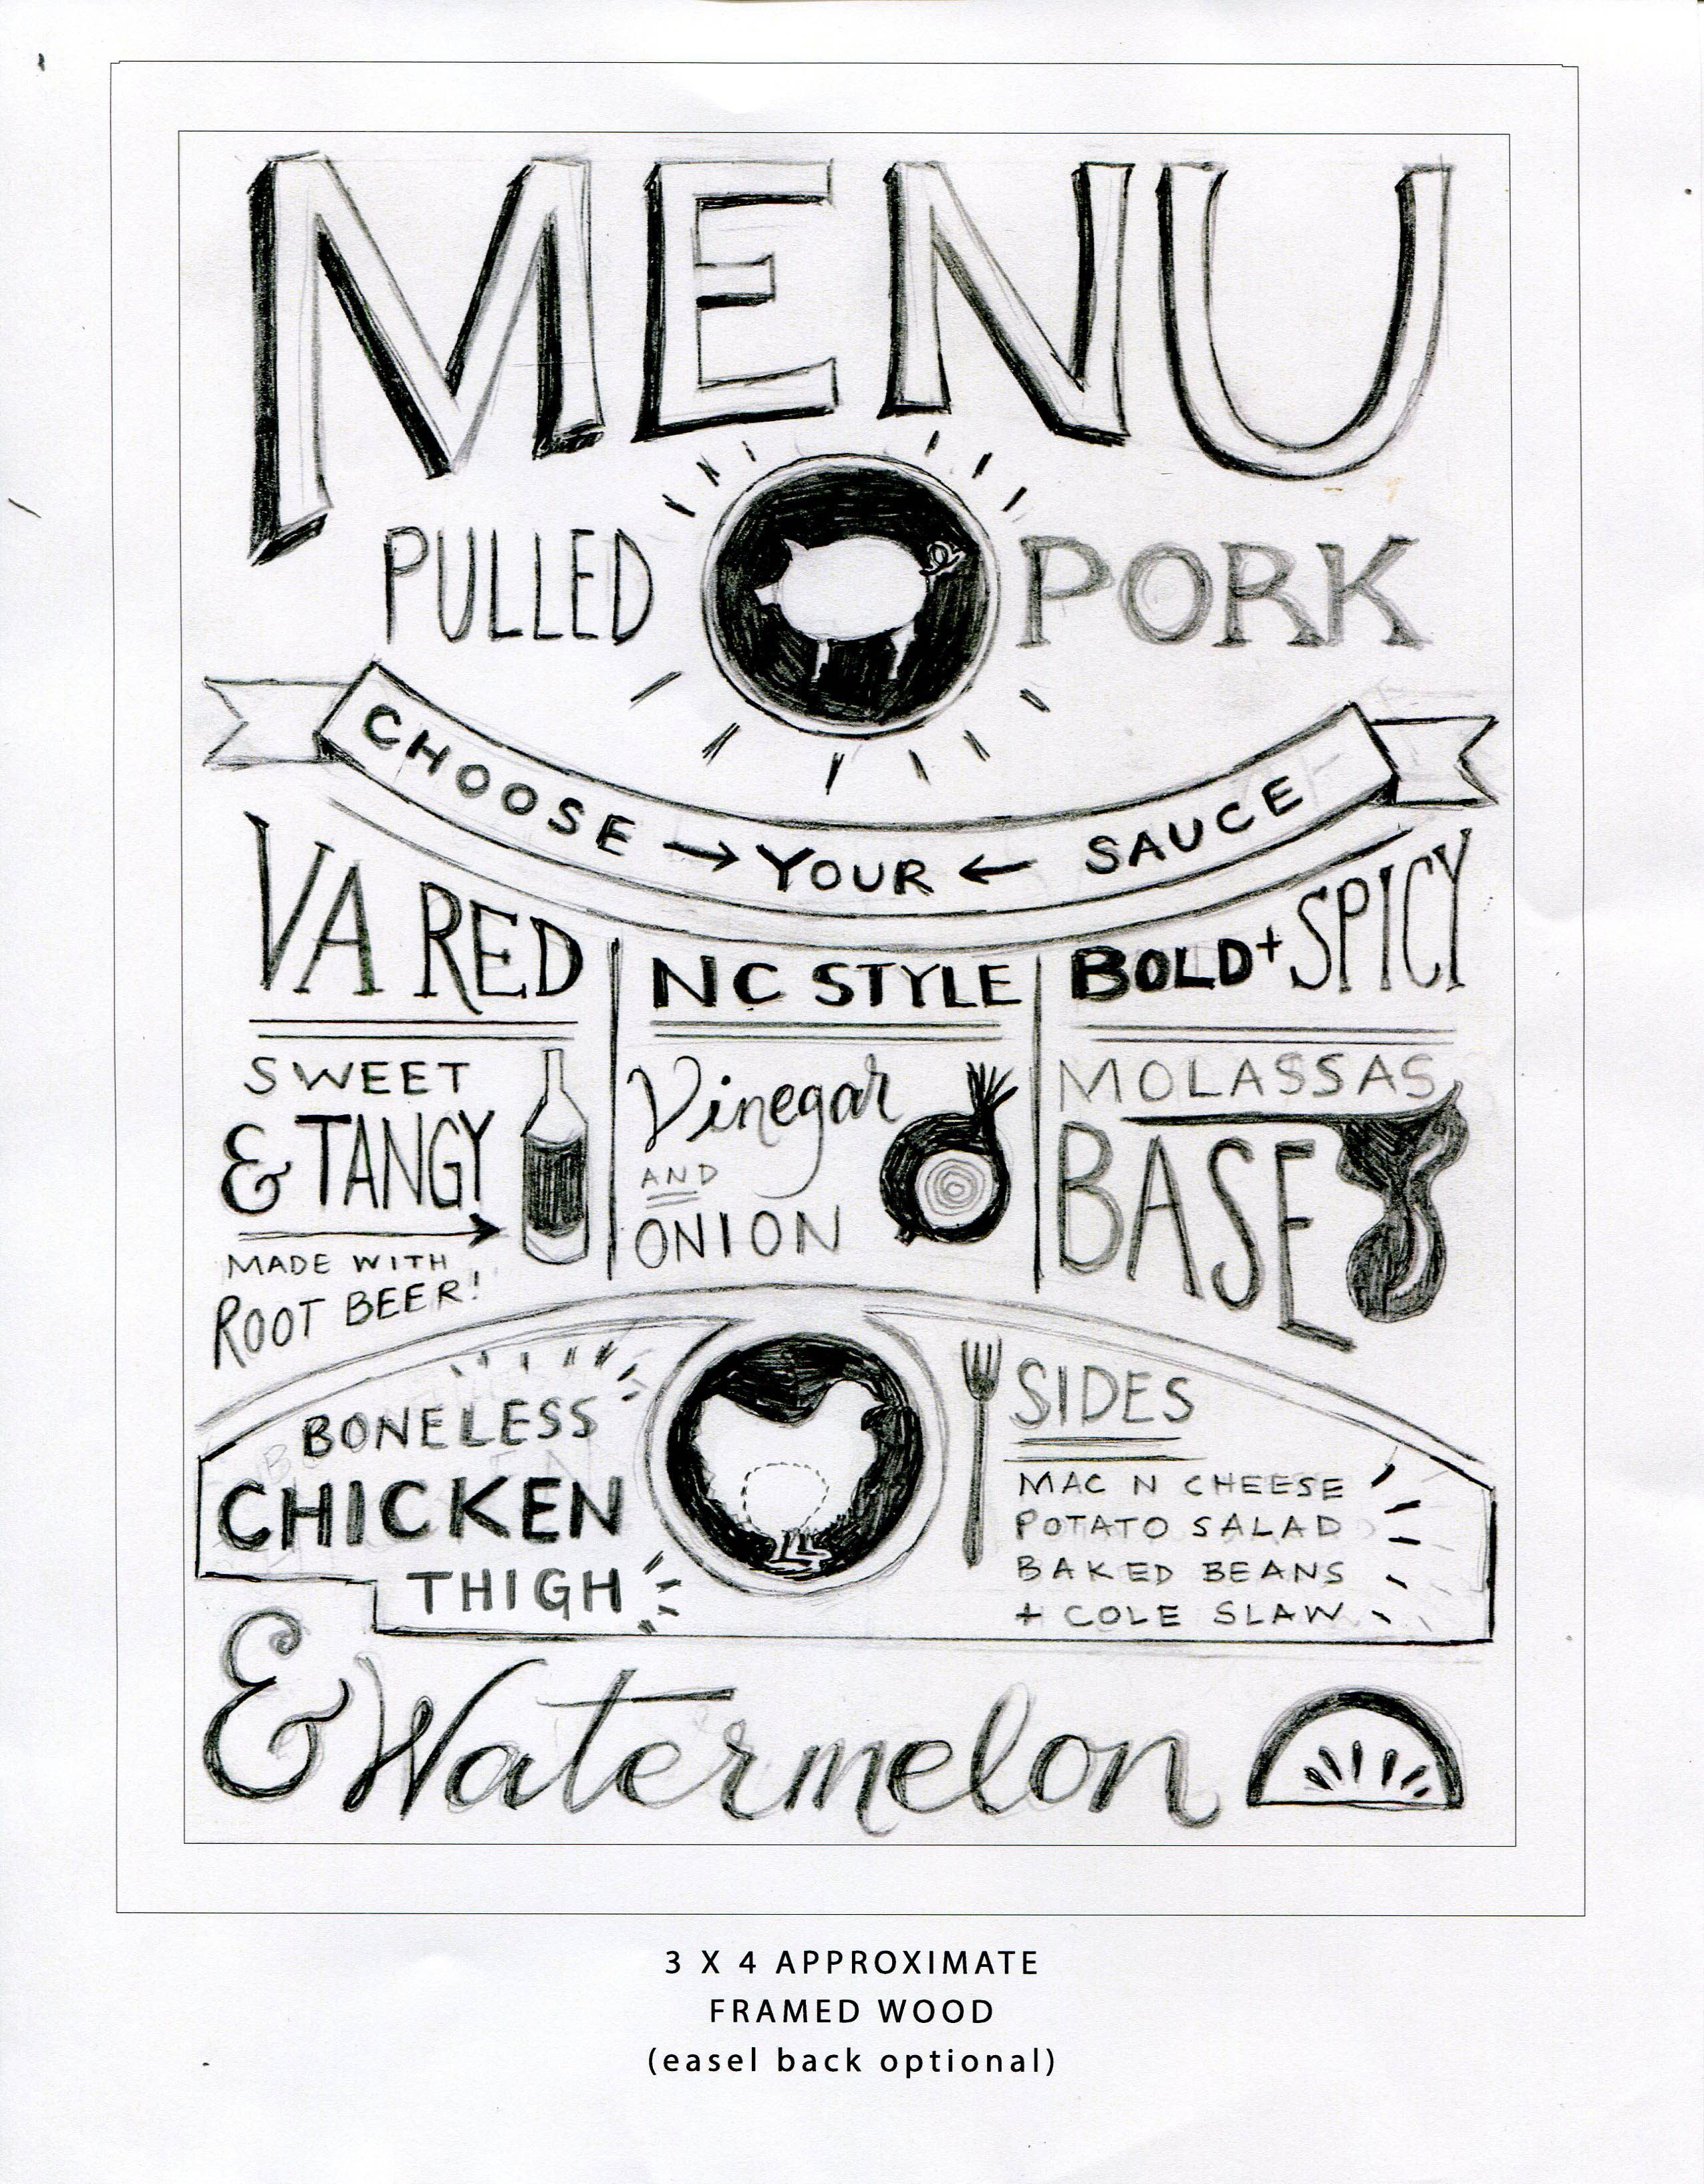 MENU
PULLED PORK
CHOOSE → YOUR ← SAUCE
VA RED
SWEET
& TANGY
MADE WITH
ROOT BEER!
NC STYLE
Vinegar
AND
ONION
BOLD + SPICY
MOLASSAS
BASE
BONELESS
CHICKEN
THIGH
SIDES
MAC N CHEESE
POTATO SALAD
BAKED BEANS
+ COLE SLAW
& Watermelon
3 X 4 APPROXIMATE
FRAMED WOOD
(easel back optional)